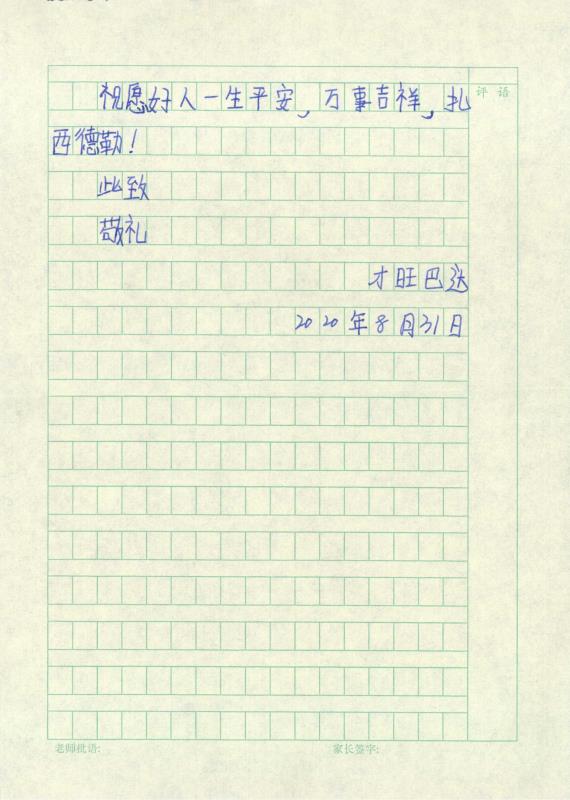 祝愿好人一生平安，万事吉祥，扎
评语
西德勒！
此致
敬礼
才旺巴达
2020年8月31日
老师批语: 家长签字: